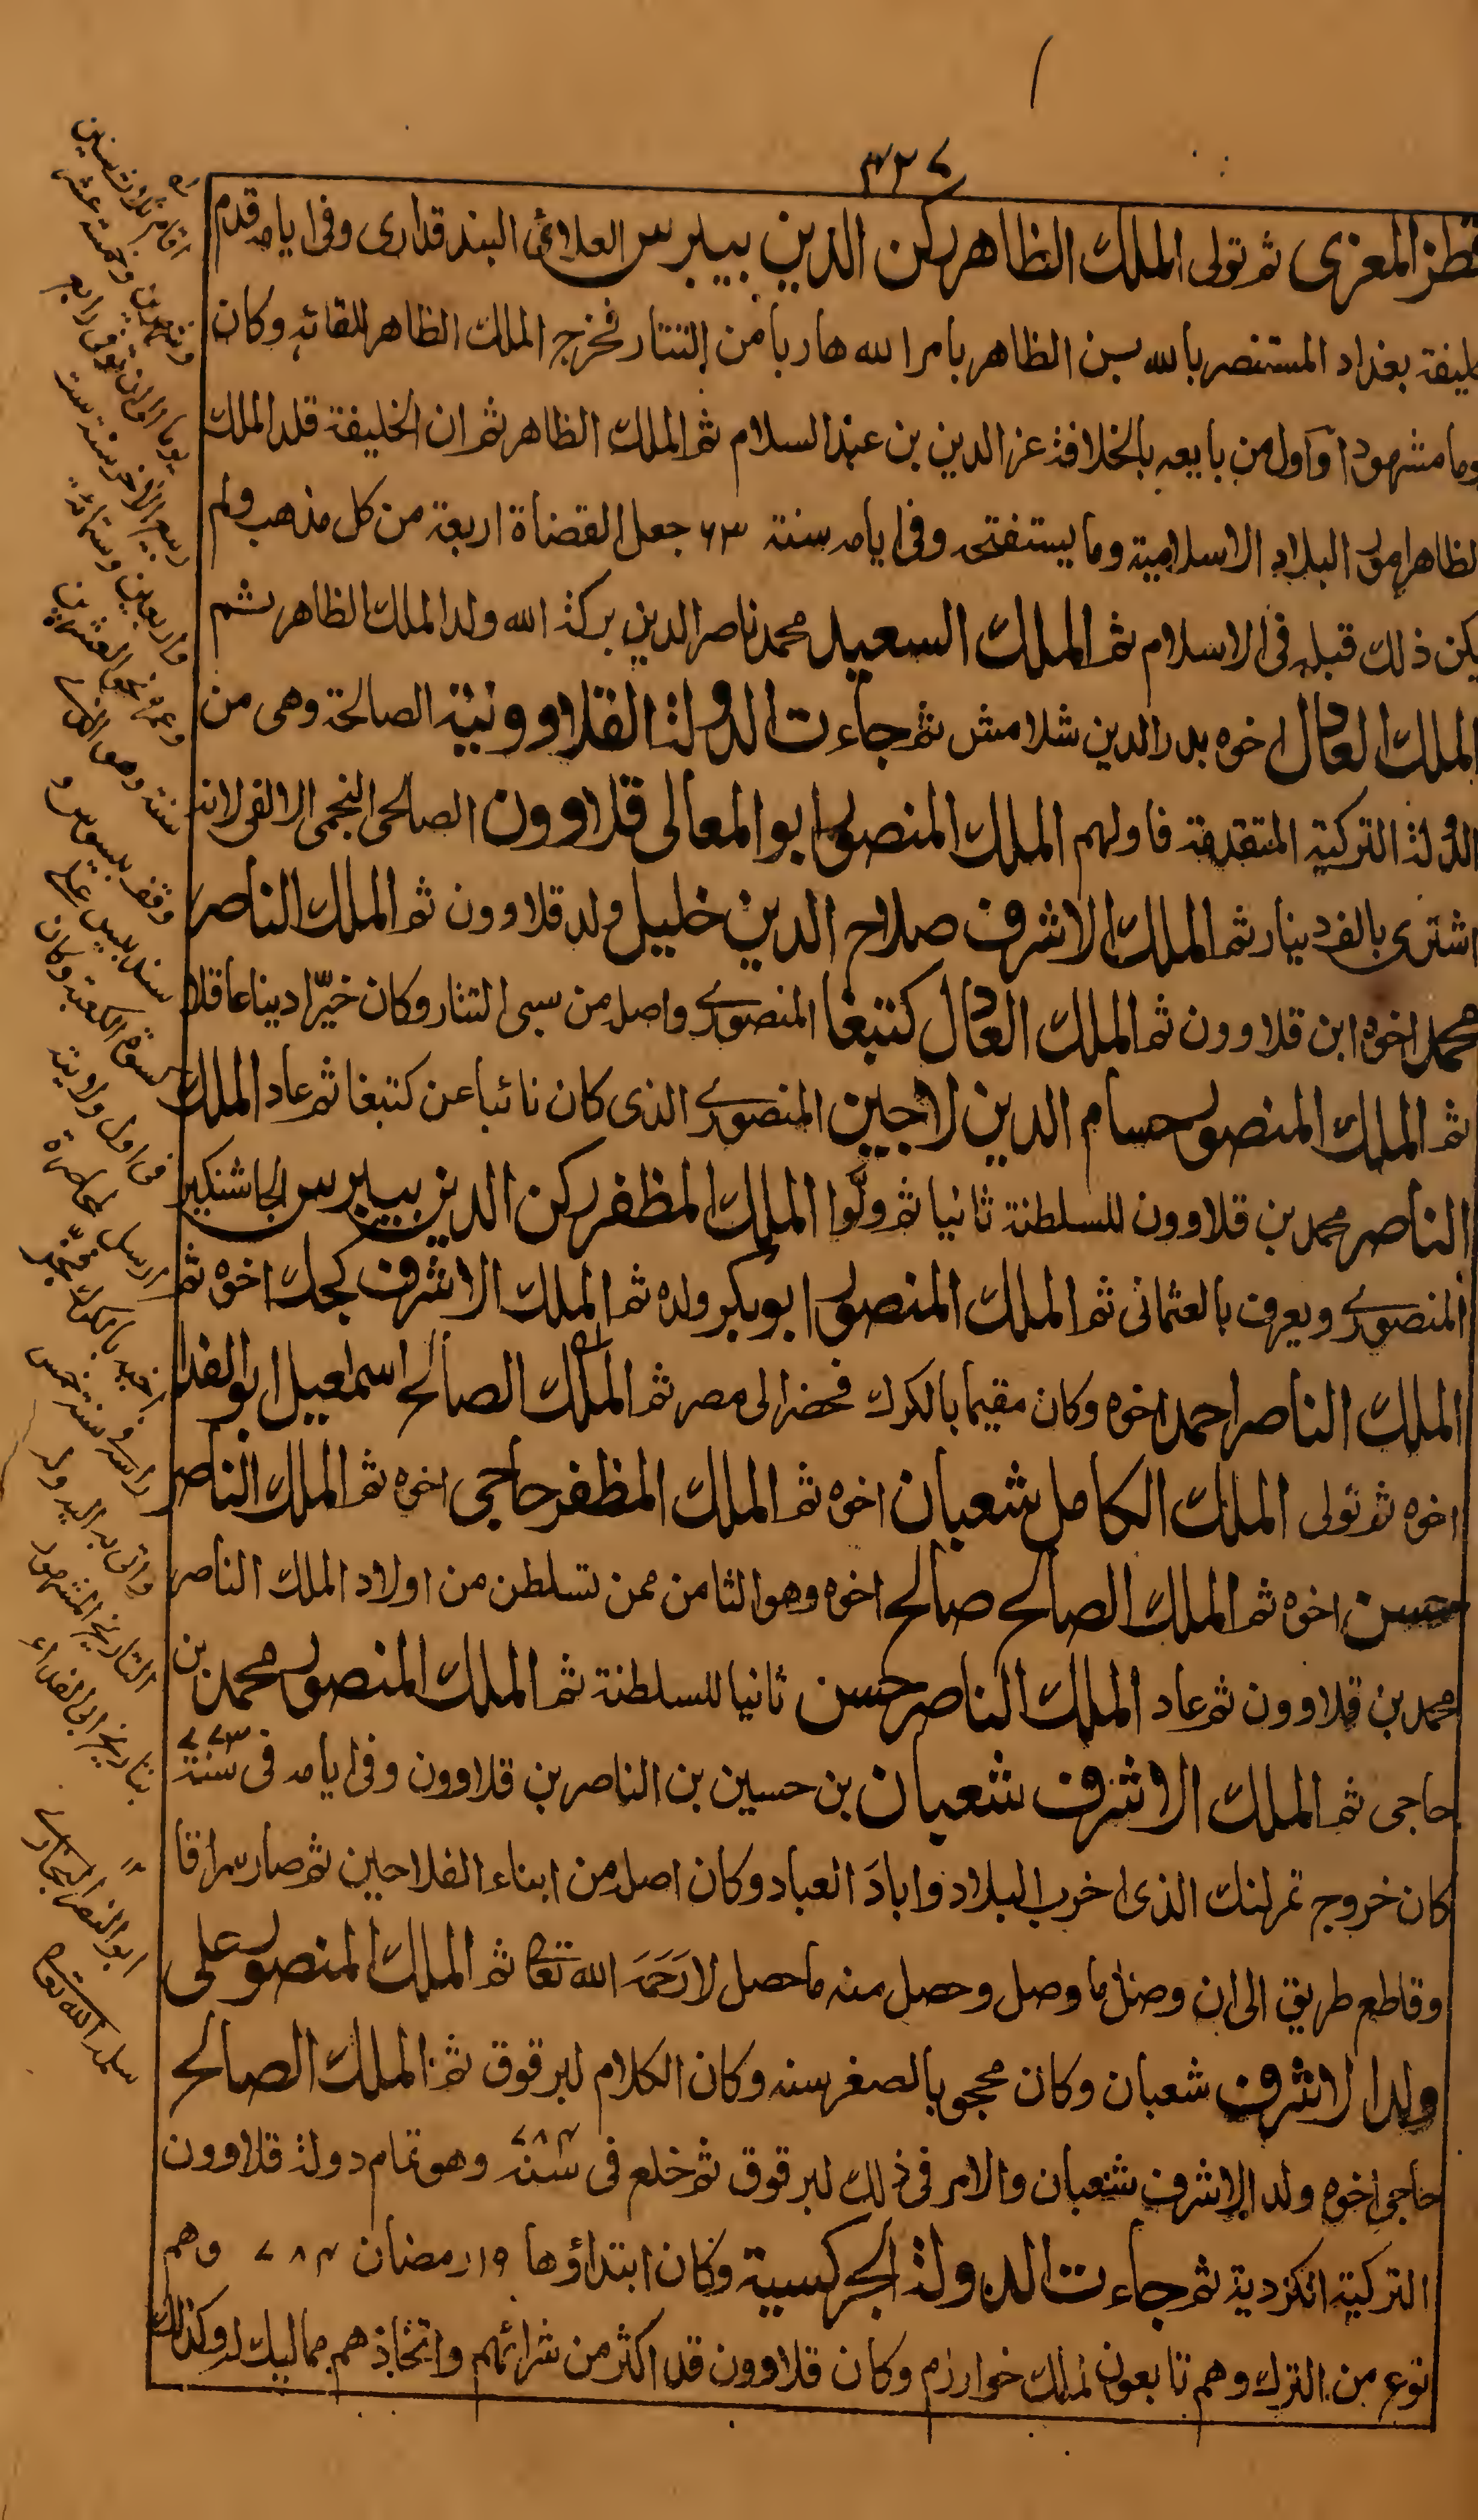 ٣٢٧
قطز المعزى ثم تولى الملك الظاهر ركن الدين بيبرس العلائى البندقدارى وفى ايامه قدم
خليفة بغداد المستنصر بالله بن الظاهر بامر الله هاربا من التتار فخرج الملك الظاهر للقائه وكان
يوما مشهودا واول من بايعه بالخلافة عز الدين بن عبد السلام ثم الملك الظاهر ثم ان الخليفة قلد الملك
الظاهر امور البلاد الاسلامية وما يستفتحه وفى ايامه سنة ٦٦٣ جعل القضاة اربعة من كل مذهب ولم
يكن ذلك قبله فى الاسلام ثم الملك السعيد محمد ناصر الدين بركة الله ولد الملك الظاهر ثم
الملك العادل اخوه بدر الدين شلامش ثم جاءت الدولة القلاوونية الصالحة وهى من
الدولة التركية المتقدمة فاولهم الملك المنصور ابو المعالى قلاوون الصالحى النجمى الالفى لانه
اشترى بالف دينار ثم الملك الاشرف صلاح الدين خليل ولد قلاوون ثم الملك الناصر
محمد اخوه ابن قلاوون ثم الملك العادل كتبغا المنصورى واصله من سبى التتار وكان خيّرا دينا عاقلا
ثم الملك المنصور حسام الدين لاجين المنصورى الذى كان نائبا عن كتبغا ثم عاد الملك
الناصر محمد بن قلاوون للسلطنة ثانيا ثم ولّوا الملك المظفر ركن الدين بيبرس الجاشنكير
المنصورى ويعرف بالعثمانى ثم الملك المنصور ابو بكر ولده ثم الملك الاشرف كجك اخوه ثم
الملك الناصر احمد اخوه وكان مقيما بالكرك فحضر الى مصر ثم الملك الصالح اسمعيل ابو الفدا
اخوه ثم تولى الملك الكامل شعبان اخوه ثم الملك المظفر حاجى اخوه ثم الملك الناصر
حسن اخوه ثم الملك الصالح صالح اخوه وهو الثامن ممن تسلطن من اولاد الملك الناصر
محمد بن قلاوون ثم عاد الملك الناصر حسن ثانيا للسلطنة ثم الملك المنصور محمد بن
حاجى ثم الملك الاشرف شعبان بن حسين بن الناصر بن قلاوون وفى ايامه فى سنة ٧٧٣
كان خروج تمرلنك الذى اخرب البلاد واباد العباد وكان اصله من ابناء الفلاحين ثم صار سراقا
وقاطع طريق الى ان وصل ما وصل وحصل منه ما حصل لا رحمه الله تعا ثم الملك المنصور على
ولد الاشرف شعبان وكان محجوبا لصغر سنه وكان الكلام لبرقوق ثم الملك الصالح
حاجى اخوه ولد الاشرف شعبان والامر فى ذلك لبرقوق ثم خلع فى سنة ٧٨٤ وهو تمام دولة قلاوون
التركية الكردية ثم جاءت الدولة الجركسية وكان ابتداؤها ١٩ رمضان ٧٨٤ وهم
نوع من الترك وهم تابعون لملك خوارزم وكان قلاوون قد اكثر من شرائهم واتخاذهم مماليك له وكذلك
اقام ثلاث سنين
وشهرين وخمسة عشر
يوما الى ان توفى رابع
ربيع الاخر سنة ست
واربعين وستمائة
وعمره نحو العشرين
سنة وهو الذى
وقف بيسوس و
سندبيس على
كسوة الكعبة وكان
فى اول ولايته
ارسل لمحاصرة
اخيه بالكرك
راسه فى سنة خمس
واتى به اليه وله
التاريخ المشهور
بتاريخ ابى الفداء
ابو النصر
سلمه الله تعا